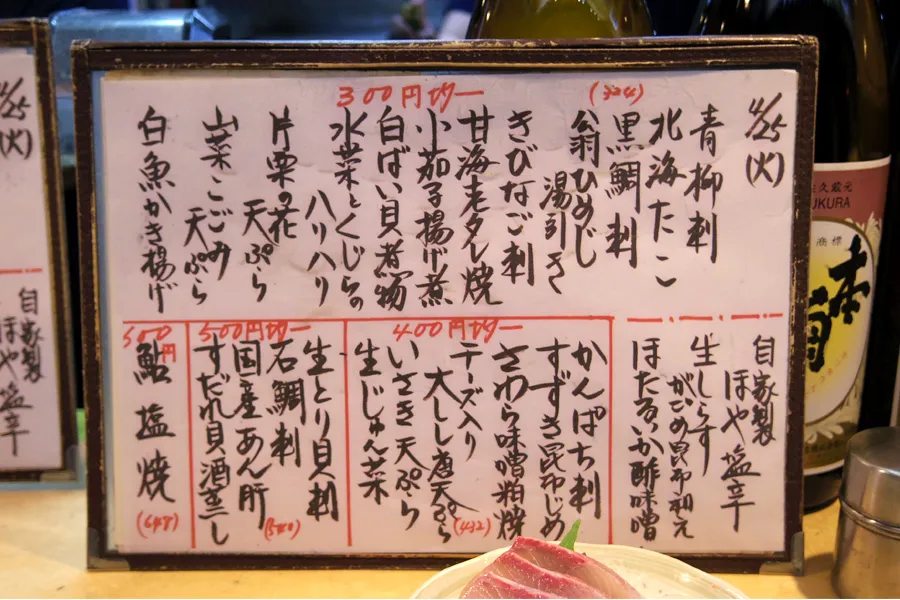 4/25
(火)
300円均一
(324)
青柳刺
北海たこ
黒鯛刺
翁ひめじ
湯引き
きびなご刺
甘海老タレ焼
小茄子揚げ煮
白ばい貝煮物
水菜とくじらの
ハリハリ
片栗の花
天ぷら
山菜こごみ
天ぷら
白魚かき揚げ
自家製
ほや塩辛
生しらす
がごめ昆布和え
ほたるいか酢味噌
400円均一
かんぱち刺
すずき昆布じめ
さわら味噌粕焼
チーズ入り
大しし唐天ぷら
(432)
いさき天ぷら
生じゅん菜
500円均一
生とり貝刺
石鯛刺
(540)
国産あん肝
すだれ貝酒蒸し
600円
鮎塩焼
(648)
4/25
(火)
自家製
ほや塩辛
久蔵元
UKURA
商標
本